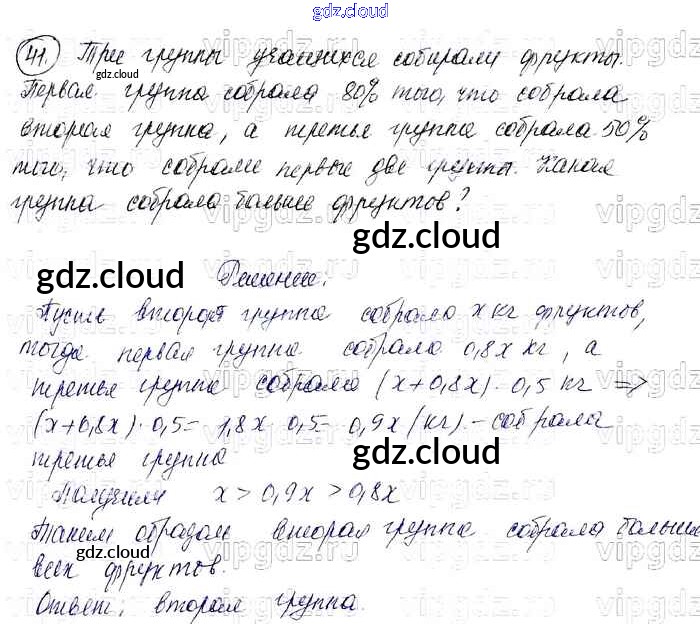 gdz.cloud
41. Три группы учащихся собирали фрукты.
gdz.cloud
Первая группа собрала 80% того, что собрала
вторая группа, а третья группа собрала 50%
того, что собрали первые две группы. Какая
группа собрала больше фруктов?
gdz.cloud
gdz.cloud
Решение:
Пусть вторая группа собрала x кг фруктов,
тогда первая группа собрала 0,8x кг, а
третья группа собрала (x+0,8x)·0,5 кг =>
(x+0,8x)·0,5= 1,8x·0,5= 0,9x (кг) - собрала
третья группа
gdz.cloud
Получили x > 0,9x > 0,8x
Таким образом вторая группа собрала больше
gdz.cloud
всех фруктов.
Ответ: вторая группа.
gdz.cloud